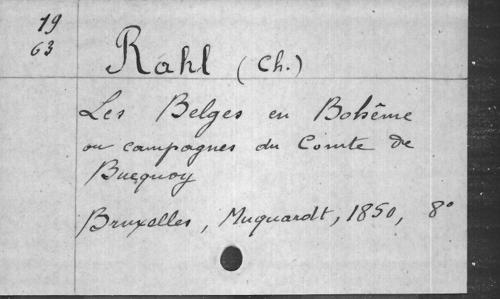 19
63
Rahl (Ch.)
Les Belges en Bohême
ou campagnes du Comte de
Bucquoy
Bruxelles, Muquardt, 1850, 8°